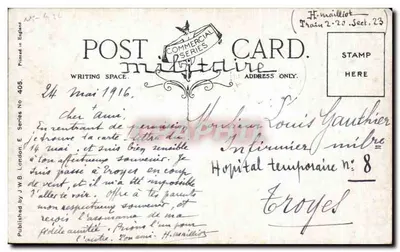 H. Maillot
Train 2-20. Sect. 23
POST CARD.
COMMERCIAL
SERIES
militaire
WRITING SPACE
ADDRESS ONLY.
STAMP
HERE
Printed in England
Published by J W B London. C.E. Series No 405.
24 Mai 1916.
Cher Ami,
En rentrant de permission
je trouve ta carte lettre du
14 mai. et suis bien sensible
à ton affectueux souvenir. Je
suis passé à Troyes en coup
de vent, et il m'a été impossible
d'aller te voir. Offre à tes parents
mon respectueux souvenir, et
reçois l'assurance de ma
fidèle amitié. Prions l'un pour
l'autre. Ton ami. H. Maillot
Monsieur Louis Gauthier
Infirmier milre
Hopital temporaire n° 8
Troyes